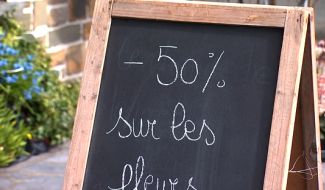 -50%
sur les
fleurs